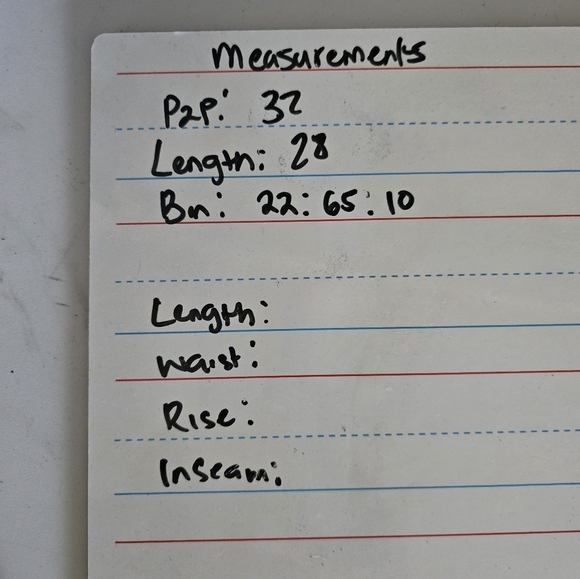 Measurements
P2P: 32
Length: 28
Bin: 22: 65: 10
Length:
Waist:
Rise:
Inseam: